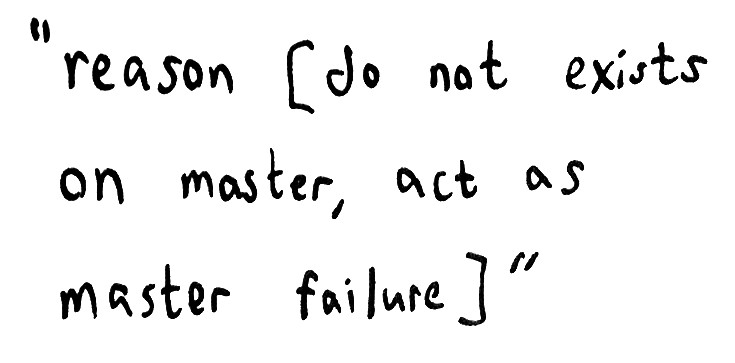 "reason [do not exists
on master, act as
master failure]"